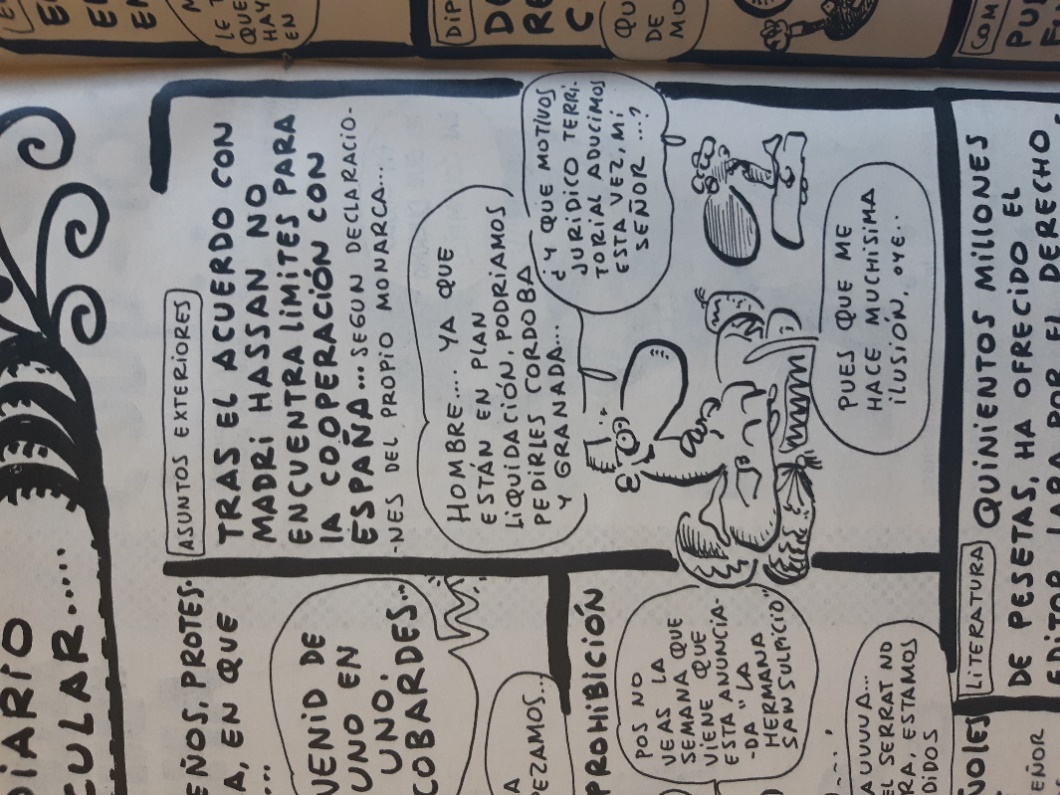 DIARIO
CULAR.....
EÑOS, PROTES-
A, EN QUE
...
VENID DE
UNO EN
UNO.
COBARDES...
A
PEZAMOS...
PROHIBICIÓN
POS NO
VEAS LA
SEMANA QUE
VIENE QUE
ESTA ANUNCIA-
-DA "LA
HERMANA
SAN SULPICIO"
AUUUUA...
EL SERRAT NO
RA, ESTAMOS
DIDOS
ÑOLES
EÑOR
ASUNTOS EXTERIORES
TRAS EL ACUERDO CON
MADRÍ HASSAN NO
ENCUENTRA LIMITES PARA
LA COOPERACIÓN CON
ESPAÑA... SEGUN DECLARACIO-
-NES DEL PROPIO MONARCA...
HOMBRE.... YA QUE
ESTÁN EN PLAN
LIQUIDACIÓN, PODRIAMOS
PEDIRLES CORDOBA
Y GRANADA...
¿Y QUE MOTIVOS
JURÍDICO TERRI-
TORIAL ADUCIMOS
ESTA VEZ, MI
SEÑOR ...?
PUES QUE ME
HACE MUCHISIMA
ILUSIÓN, OYE..
LITERATURA
QUINIENTOS MILLONES
DE PESETAS, HA OFRECIDO EL
EDITOR LARA POR EL DERECHO
LE T
QUE
HAY
EN
DIP
DE
RE
C
QU
DE
MO
COM
PU
EN